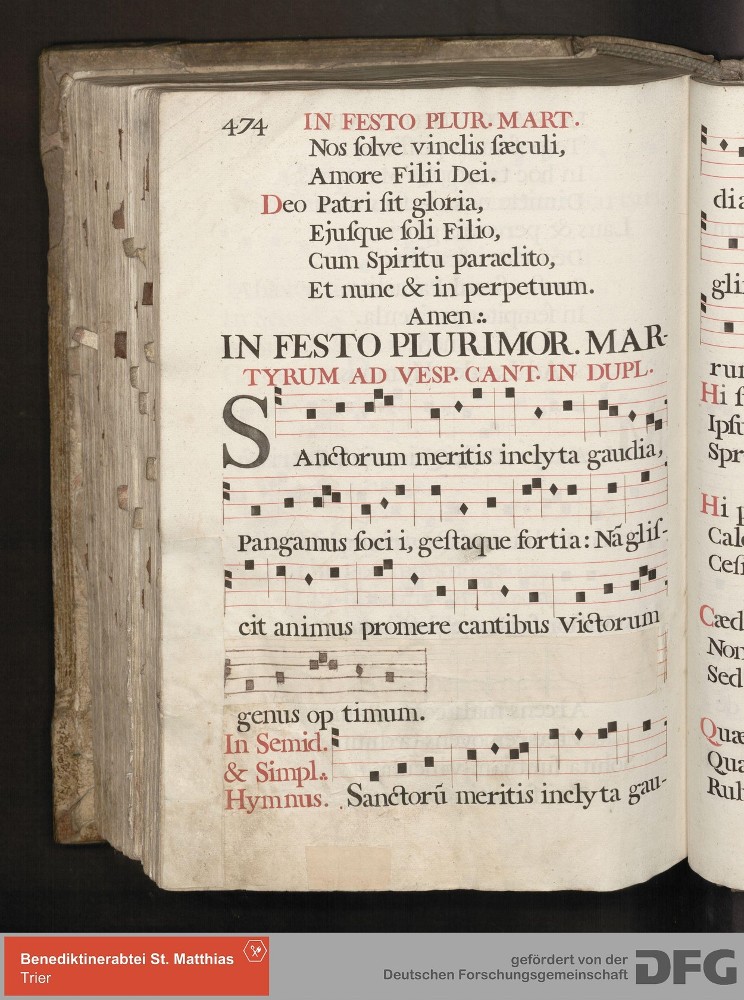 474 IN FESTO PLUR. MART.
Nos ſolve vinclis ſæculi,
Amore Filii Dei.
Deo Patri ſit gloria,
Ejuſque ſoli Filio,
Cum Spiritu paraclito,
Et nunc & in perpetuum.
Amen.
IN FESTO PLURIMOR. MAR-
TYRUM AD VESP. CANT. IN DUPL.
SAnctorum meritis inclyta gaudia,
Pangamus ſoci i, geſtaque fortia: Nã gliſ-
cit animus promere cantibus Victorum
genus op timum.
In Semid.
& Simpl.
Hymnus. Sanctorũ meritis inclyta gau-
dia
gli
rum
Hi
Ipſu
Spr
Hi
Cal
Ceſ
Cæd
Non
Sed
Quæ
Qua
Rub
Benediktinerabtei St. Matthias
Trier
gefördert von der
Deutschen Forschungsgemeinschaft
DFG